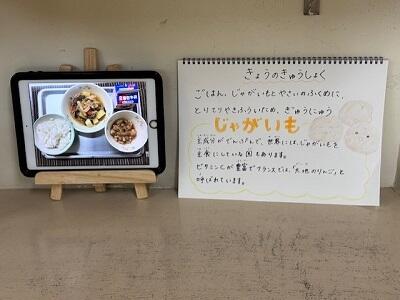 きょうのきゅうしょく
ごはん、じゃがいもとやさいのふくめに、
とりてりやきふういため、ぎゅうにゅう
じゃがいも
主成分がでんぷんで、世界にはじゃがいもを
主食にしている国もあります。
ビタミンCが豊富でフランスでは、「大地のりんご」と
呼ばれています。